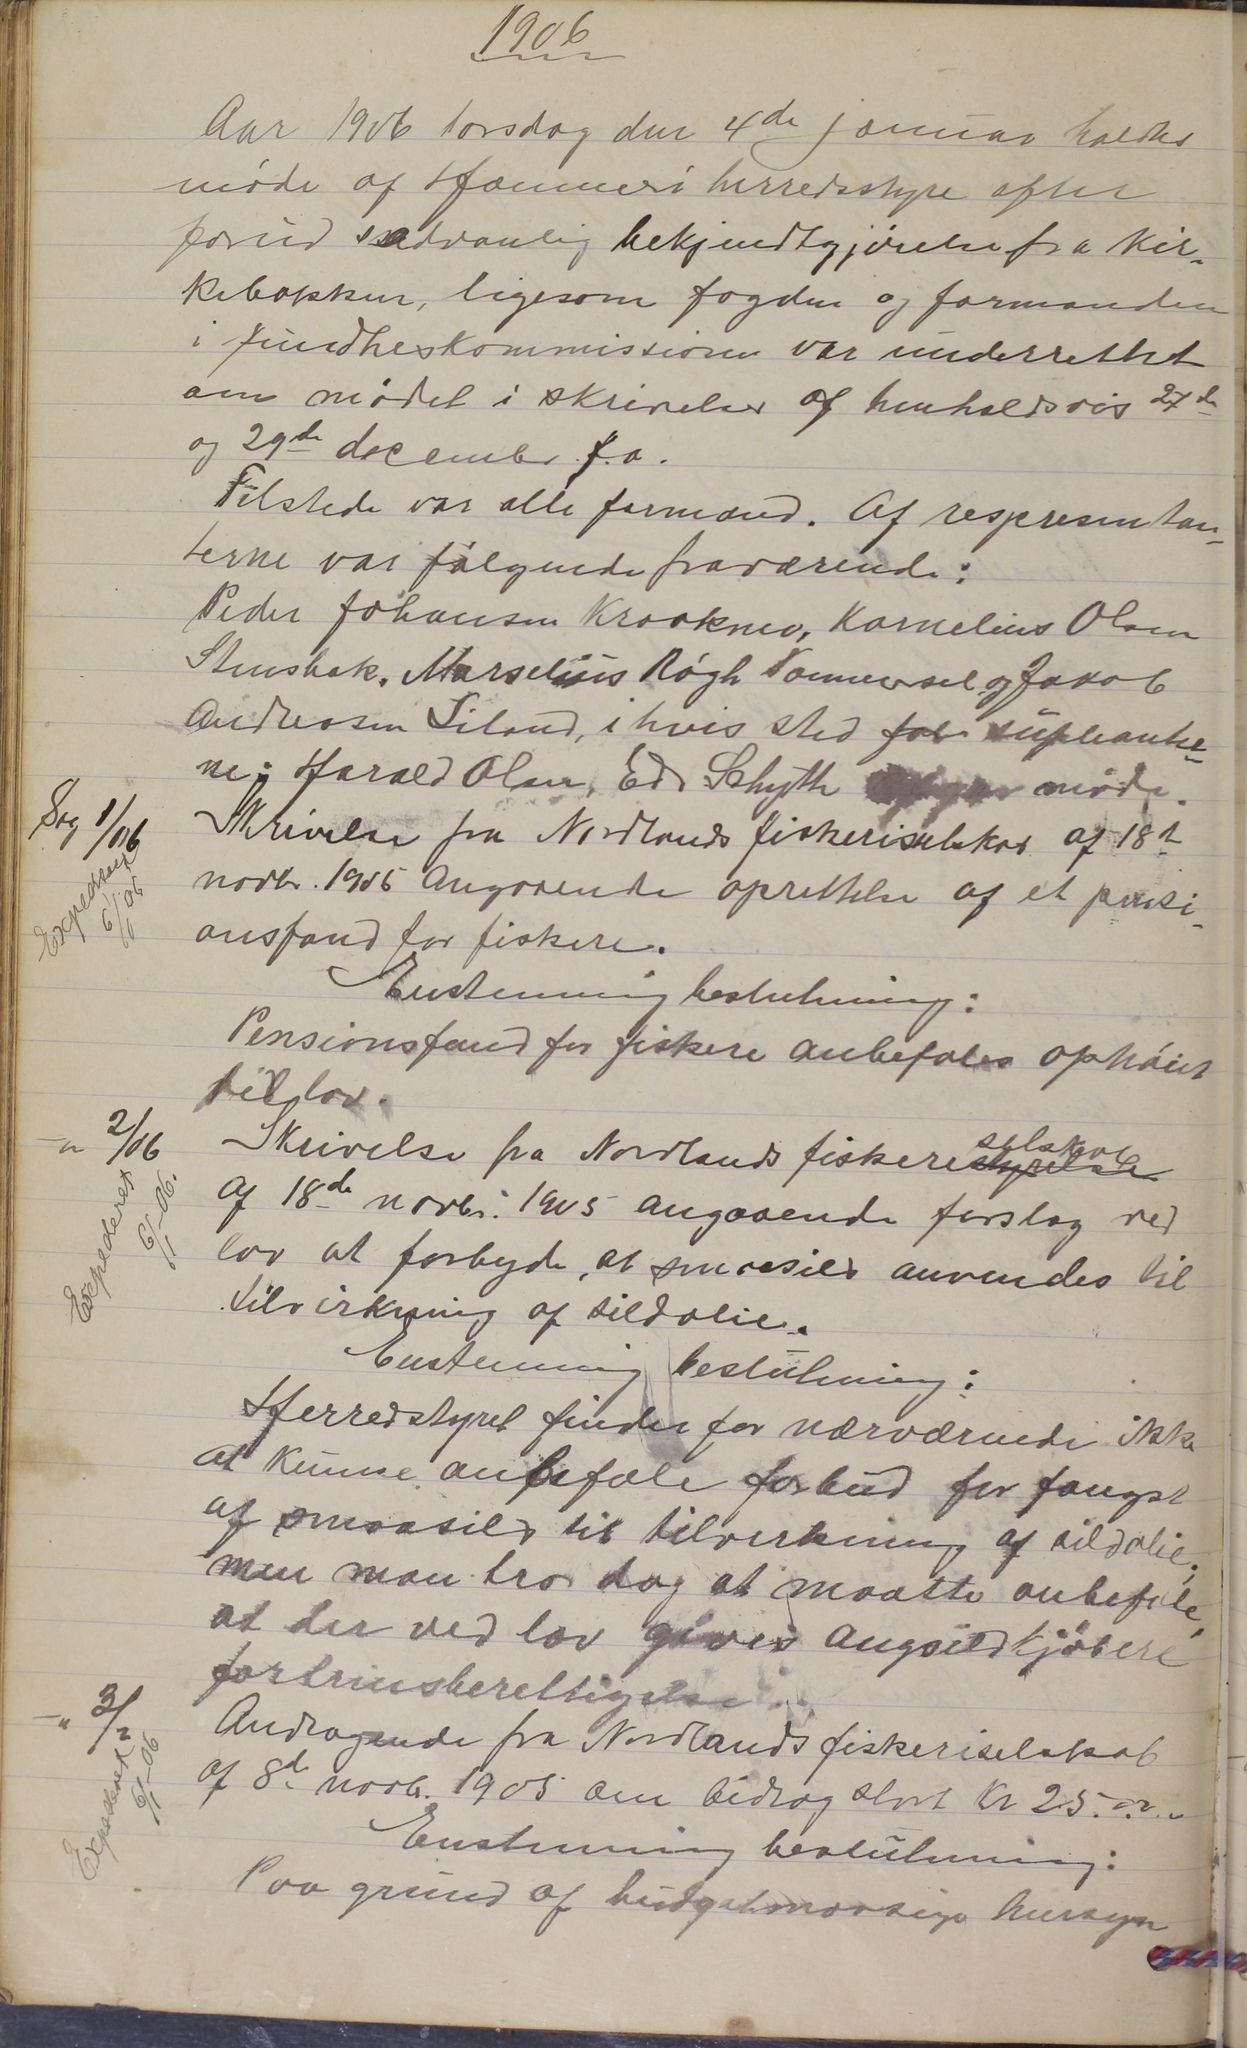 1906
Aar 1906 torsdag den 4de januar holdtes
møde af Hammerø herredsstyre efter
forud sædvanlig bekjendtgjørelse fra kir-
kebakken, ligesom fogden og formanden
i sundheskommissionen var underrettet
om mødet i skrivelser af henholdsvis 27de
og 29de december f.a.
Tilstede var alle formænd. Af respresentan-
terne var følgende fraværende:
Peder Johansen Kraakmo, Kornelius Olsen
Stensbak, Marselius Røgh Tømmersel og Jakob
Andreasen Liland, i hvis sted supleante-
ne; Harald Olsen, Edv Schyth møde.
Sag 1/06
Skrivelse fra Nordlands fiskeriselskab af 18de
novbr. 1905 angaaende oprettelse af et pensi-
onsfond for fiskere.
Expederet 6/1 06
Enstemmig beslutning:
Pensionsfond for fiskere anbefales ophøiet
til lov.
-"- 2/06
Skrivelse fra Nordlands fiskeriselskab styrelse
af 18de novbr. 1905 angaaende forslag ved
lov at forbyde, at smaasild anvendes til
tilvirkning af sildolie.
Expederet 6/1-06.
Enstemmig beslutning:
Herredstyret finder for nærværende ikke
at kunne anbefale forbud for fangst
af smaasild til tilvirkning af sildolie;
men man tror dog at maatte anbefale,
at der ved lov gives angsildkjøbere
fortrinsberettigelse.
-"- 3/"
Andragende fra Nordlands fiskeriselskab
af 8de novbr. 1905 om bidrag stort Kr 25.
Expederet 6/1-06
Enstemmig beslutning:
Paa grund af budgetmæssige hensyn